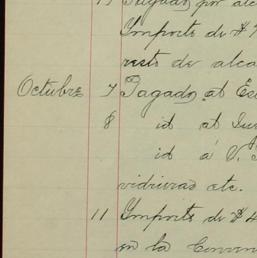 13 Pagado por alca
Importe de $
resto de alca
Octubre 7 Pagado al Es
8 id al
id á V.
vidrieras etc.
11 Importe de $4
en la Conven